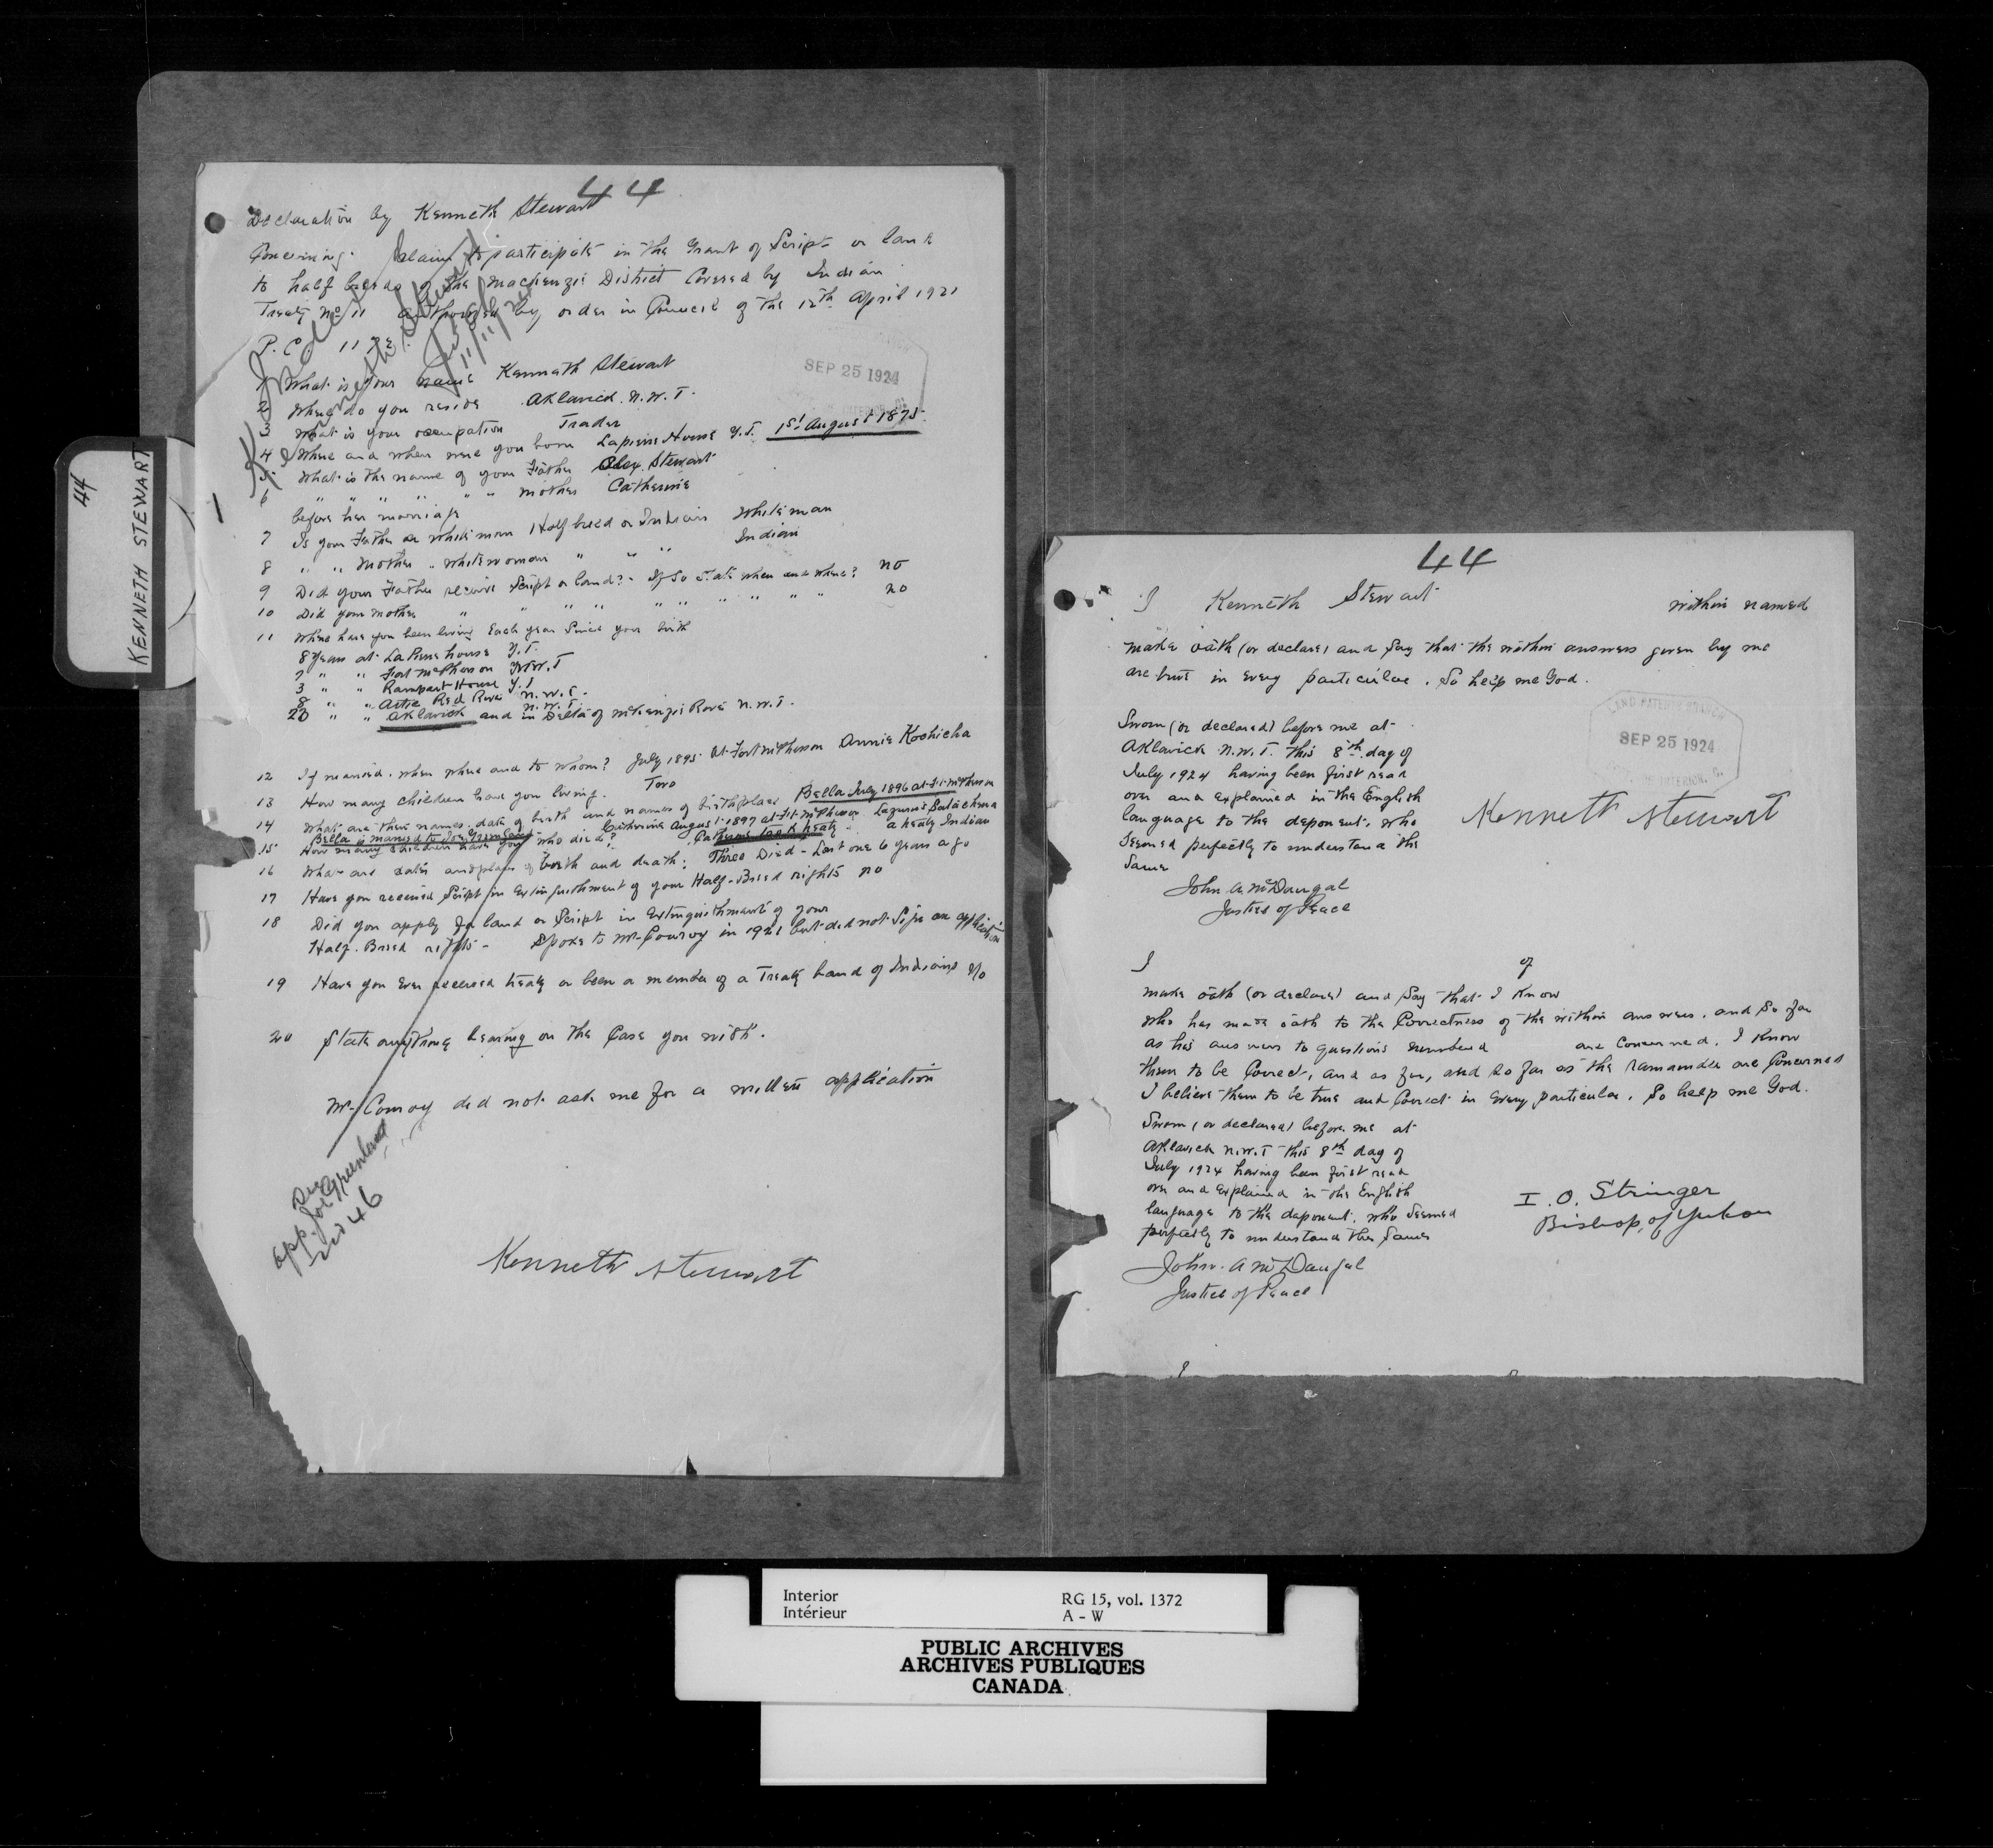 44
KENNETH STEWART
44
Declaration by Kenneth Stewart
Concerning claim to participate in the Grant of Script or land
to half breeds of the Mackenzie District Covered by Indian
Treaty No 11 authorized by order in Council of the 12th April 1921
P.C. 1172
SEP 25 1924
1 What is your name Kenneth Stewart
2 Where do you reside Aklavick. N.W.T.
3 What is your occupation Trader
4 Where and when were you born Lapierre House Y.T. 1st August 1875
5 What is the name of your Father Alex. Stewart
6 " " " " " " mother Catherine
before her marriage
7 Is your Father a white man Half breed or Indian White man
8 " " Mother " white woman " " " Indian
9 Did your Father receive Script or land? - If so state when and where? no
10 Did your mother " " " " " " " " " " no
11 Where have you been living Each year Since your birth
8 years at La Pierre house Y.T.
7 " " Fort McPherson N.W.T
3 " " Rampart House Y.T
8 " " Artic Red River N.W.T.
20 " " Aklavick and in Delta of McKenzie River N.W.T.
12 If married. when where and to whom? July 1895 at Fort McPherson Annie Kochicha
13 How many children have you living. Two
14 What are their names, date of birth and names of birthplace Bella July 1896 at Ft. McPherson
Catherine August 1897 at Ft. McPherson
Bella is married to Joe Greenland Catherine took treaty a treaty Indian
15 How many children have you who died?
16 What are dates and place of birth and death: Three Died - Last one 6 years ago
17 Have you received Script in Extinguishment of your Half-Breed rights no
18 Did you apply for land or Script in Extinguishment of your
Half-Breed rights - Spoke to Mr Conroy in 1921 but did not sign an application
19 Have you Ever received treaty or been a member of a Treaty band of Indians No
20 State anything bearing on the Case you wish.
Mr Conroy did not ask me for a written application
See
app. Joe Greenland
No 46
Kenneth Stewart
44
I Kenneth Stewart within named
make oath (or declare) and Say that the within answers given by me
are true in every particular. So help me God.
Sworn (or declared) before me at
Aklavick N.W.T. this 8th day of
July 1924 having been first read
over and explained in the English
language to the deponent, who
seemed perfectly to understand the
same
LAND PATENTS BRANCH
SEP 25 1924
Kenneth Stewart
John A. McDougal
Justice of Peace
I of
make oath (or declare) and Say that I Know
who has made oath to the Correctness of the within answers. and So far
as his answers to questions numbered are Concerned. I Know
them to be Correct, and as far, and so far as the remainder are Concerned
I believe them to be true and Correct in Every particular. So help me God.
Sworn (or declared) before me at
Aklavick N.W.T this 8th day of
July 1924 having been first read
over and Explained in the English
language to the deponent, who seemed
perfectly to understand the same
I. O. Stringer
Bishop of Yukon
John. A McDougal
Justice of Peace
Interior RG 15, vol. 1372
Intérieur A - W
PUBLIC ARCHIVES
ARCHIVES PUBLIQUES
CANADA